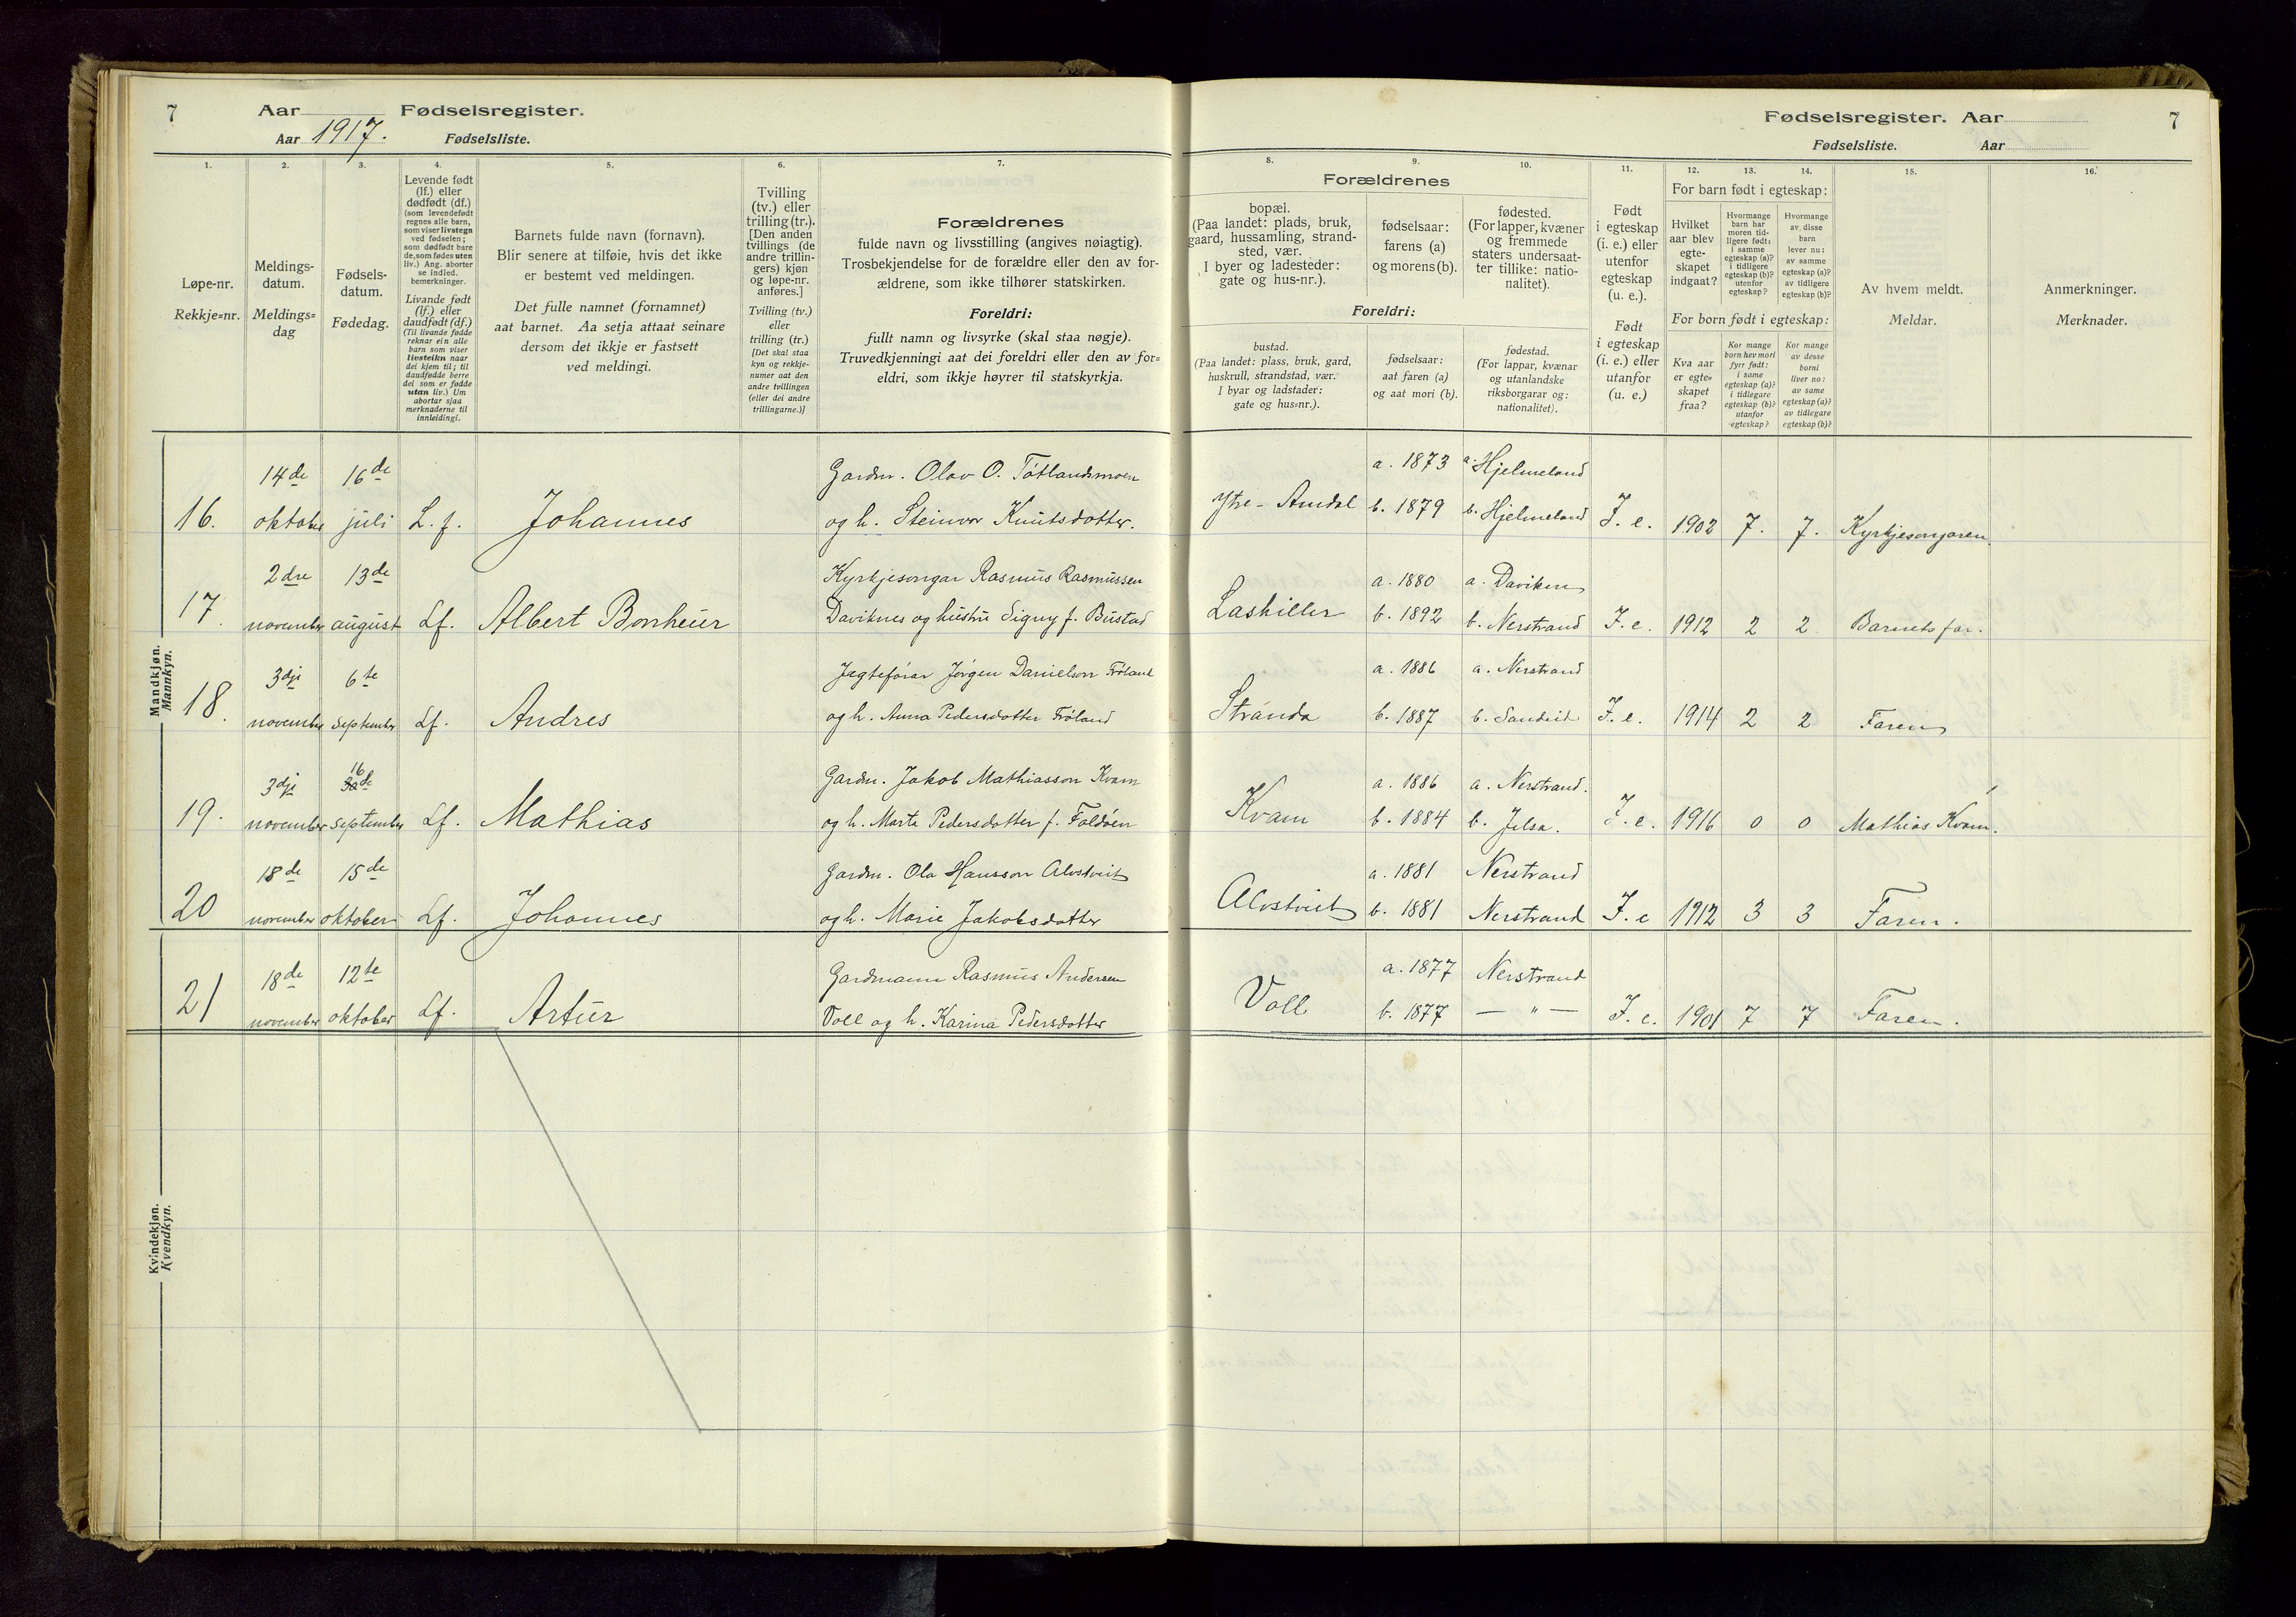 7 Aar Fødselsregister.
Aar 1917. Fødselsliste.
Fødselsregister. Aar 7
Fødselsliste. Aar
1. 2. 3. 4. 5. 6. 7.
8. 9. 10. 11. 12. 13. 14. 15. 16.
Løpe-nr.
Rekkje=nr.
Meldings-
datum.
Meldings=
dag
Fødsels-
datum.
Fødedag.
Levende født
(lf.) eller
dødfødt (df.)
(som levendefødt
regnes alle barn,
som viser livstegn
ved fødselen;
som dødfødt bare
de, som fødes uten
liv.) Ang. aborter
se indled.
bemerkninger.
Livande født
(lf.) eller
daudfødt (df.)
(Til livande fødde
reknar ein alle
barn som viser
livsteikn naar
dei kjem til; til
daudfødde berre
dei som er fødde
utan liv.) Um
abortar sjaa
merknaderne til
innleidingi.
Barnets fulde navn (fornavn).
Blir senere at tilføie, hvis det ikke
er bestemt ved meldingen.
Det fulle namnet (fornamnet)
aat barnet. Aa setja attaat seinare
dersom det ikkje er fastsett
ved meldingi.
Tvilling
(tv.) eller
trilling (tr.).
[Den anden
tvillings (de
andre trillin-
gers) kjøn
og løpe-nr.
anføres.]
Tvilling (tv.)
eller
trilling (tr.)
[Det skal staa
kyn og rekkje-
numer aat den
andre tvillingen
(eller dei andre
trillingarne.)]
Forældrenes
fulde navn og livsstilling (angives nøiagtig).
Trosbekjendelse for de forældre eller den av for-
ældrene, som ikke tilhører statskirken.
Foreldri:
fullt namn og livsyrke (skal staa nøgje).
Truvedkjenningi aat dei foreldri eller den av for=
eldri, som ikkje høyrer til statskyrkja.
Forældrenes
bopæl.
(Paa landet: plads, bruk,
gaard, hussamling, strand-
sted, vær.
I byer og ladesteder:
gate og hus-nr.).
fødselsaar:
farens (a)
og morens (b).
fødested.
(For lapper, kvæner
og fremmede
staters undersaat-
ter tillike: natio-
nalitet).
Foreldri:
bustad.
(Paa landet: plass, bruk, gard,
huskrull, strandstad, vær.
I byar og ladstader:
gate og hus=nr.).
fødselsaar:
aat faren (a)
og aat mori (b).
fødestad.
(For lappar, kvænar
og utanlandske
riksborgarar og:
nationalitet).
Født
i egteskap
(i. e.) eller
utenfor
egteskap
(u. e.).
Født
i egteskap
(i. e.) eller
utanfor
(u. e.)
For barn født i egteskap:
Hvilket
aar blev
egte-
skapet
indgaat?
Hvormange
barn har
moren tid-
ligere født:
i samme
egteskap (a)?
i tidligere
egteskap (b)?
utenfor
egteskap?
Hvormange
av disse
barn
lever nu:
av samme
egteskap (a)?
av tidligere
egteskap (b)?
For born født i egteskap:
Kva aar
er egte=
skapet
fraa?
Kor mange
born hev mori
fyrr født:
i same
egteskap (a)?
i tidlegare
egteskap (b)?
utanfor
egteskap?
Kor mange
av desse
borni
liver no:
av same
egteskap (a)?
av tidlegare
egteskap (b)?
Av hvem meldt.
Meldar.
Anmerkninger.
Merknader.
Mandkjøn.
Mannkyn.
14de 16de Gardm. Olav O. Tøtlandsmoen a. 1873 a. Hjelmeland
16. oktober juli L. f. Johannes og h. Steinvor Knutsdotter. Ytre-Amdal b. 1879 b. Hjelmeland I. e. 1902 7. 7. Kyrkjesongaren.
2dre 13de Kyrkjesongar Rasmus Rasmussen a. 1880 a. Daviken
17. november august Lf. Albert Bonheur Daviknes og hustru Signy f. Bustad Laskiller b. 1892 b. Nerstrand I. e. 1912 2 2 Barnets far.
3dje 6te Jagteførar Jørgen Danielson Frøland a. 1886 a. Nerstrand
18. november september Lf. Andres og h. Anna Pedersdotter Frøland Stranda b. 1887 b. Sandeid I. e. 1914 2 2 Faren
3dje 16de Gardm. Jakob Mathiasson Kvam a. 1886 a. Nerstrand.
19. november september Lf. Mathias og h. Marta Pedersdotter f. Foldøen Kvam b. 1884 b. Jelsa. I. e. 1916 0 0 Mathias Kvam.
18de 15de Gardm. Ola Hansson Alvstveit a. 1881 Nerstrand
20 november oktober Lf. Johannes og h. Marie Jakobsdotter Alvstveit b. 1881 Nerstrand I. e 1912 3 3 Faren.
18de 12te Gardmann Rasmus Andersen a. 1877 Nerstrand
21 november oktober Lf. Artur Voll og h. Karina Pedersdotter Voll b. 1877 — " — I. e. 1901 7 7 Faren.
Kvindekjøn.
Kvendkyn.